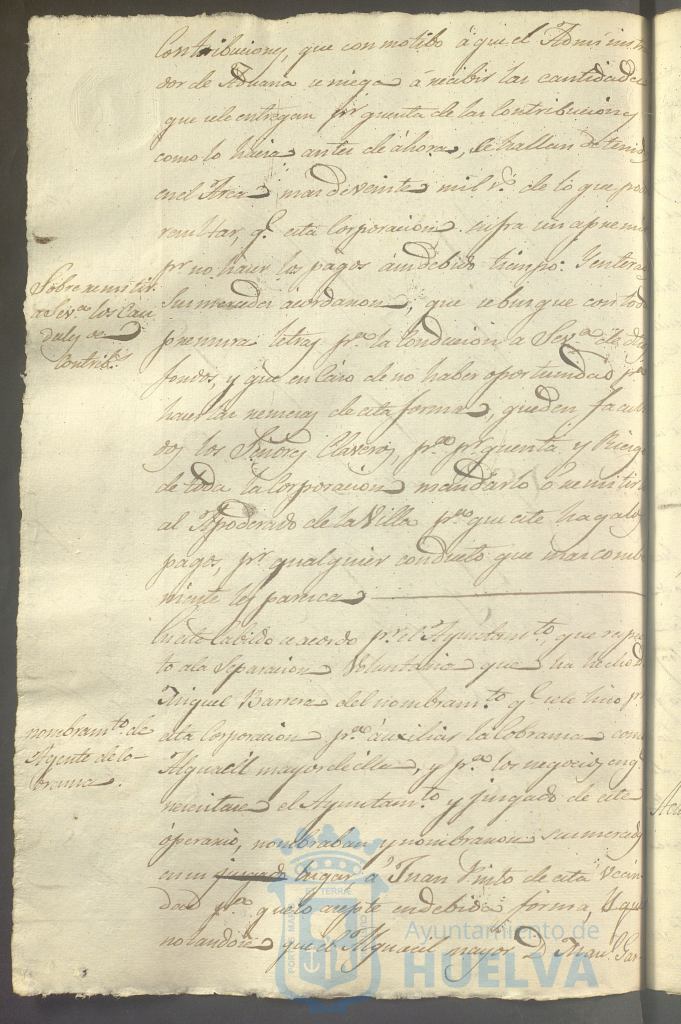 Contribuciones, que con motibo á que el Adminis
dor de Aduana se niega á recibir las cantidades
que se le entregan pr. quenta de las Contribuciones
como lo hacia antes de áhora, se hallan detenid
en el Arca mas de veinte mil rs. de lo que pue
resultar, qe. esta Corporacion sufra un apremio
pr. no hacer los pagos á un debido tiempo: Y entera
Sus mercedes acordaron, que se busque con toda
premura letras pa. la conducion a Seva. de dhos
fondos, y que en Caso de no haber oportunidad pa.
hacer las remesas de esta forma, queden facult
dos los Señores Claveros, pa. pr. quenta y Riesgo
de toda la Corporacion mandarlo o remitir
al Apoderado de la Villa pa. que este haga los
pagos, pr. qualquier conducto que mas comb
niente les paresca
Sobre remitir
a Seva. los Cau
dales de
Contribs.
En este Cabildo se acordo pr. el Ayuntamto., que respe
to ala Separacion Voluntaria que ha hecho
Miguel Barrera del nombramto. qe. se le hizo pr.
esta Corporacion pa. auxiliar la Cobranza como
Alguacil mayor de ella, y pa. los negocios en qe.
necesitare el Ayuntamto. y juzgado de este
óperario, nombraban y nombraron sus mercedes
en su juzgado lugar á Juan Pinto de esta Vecin
dad pa. que lo acepte en debida forma, Y que
notandose que el Alguacil mayor D. Juan Gar
nombramto. de
Agente de Co
branza.
Ayuntamiento de
HUELVA